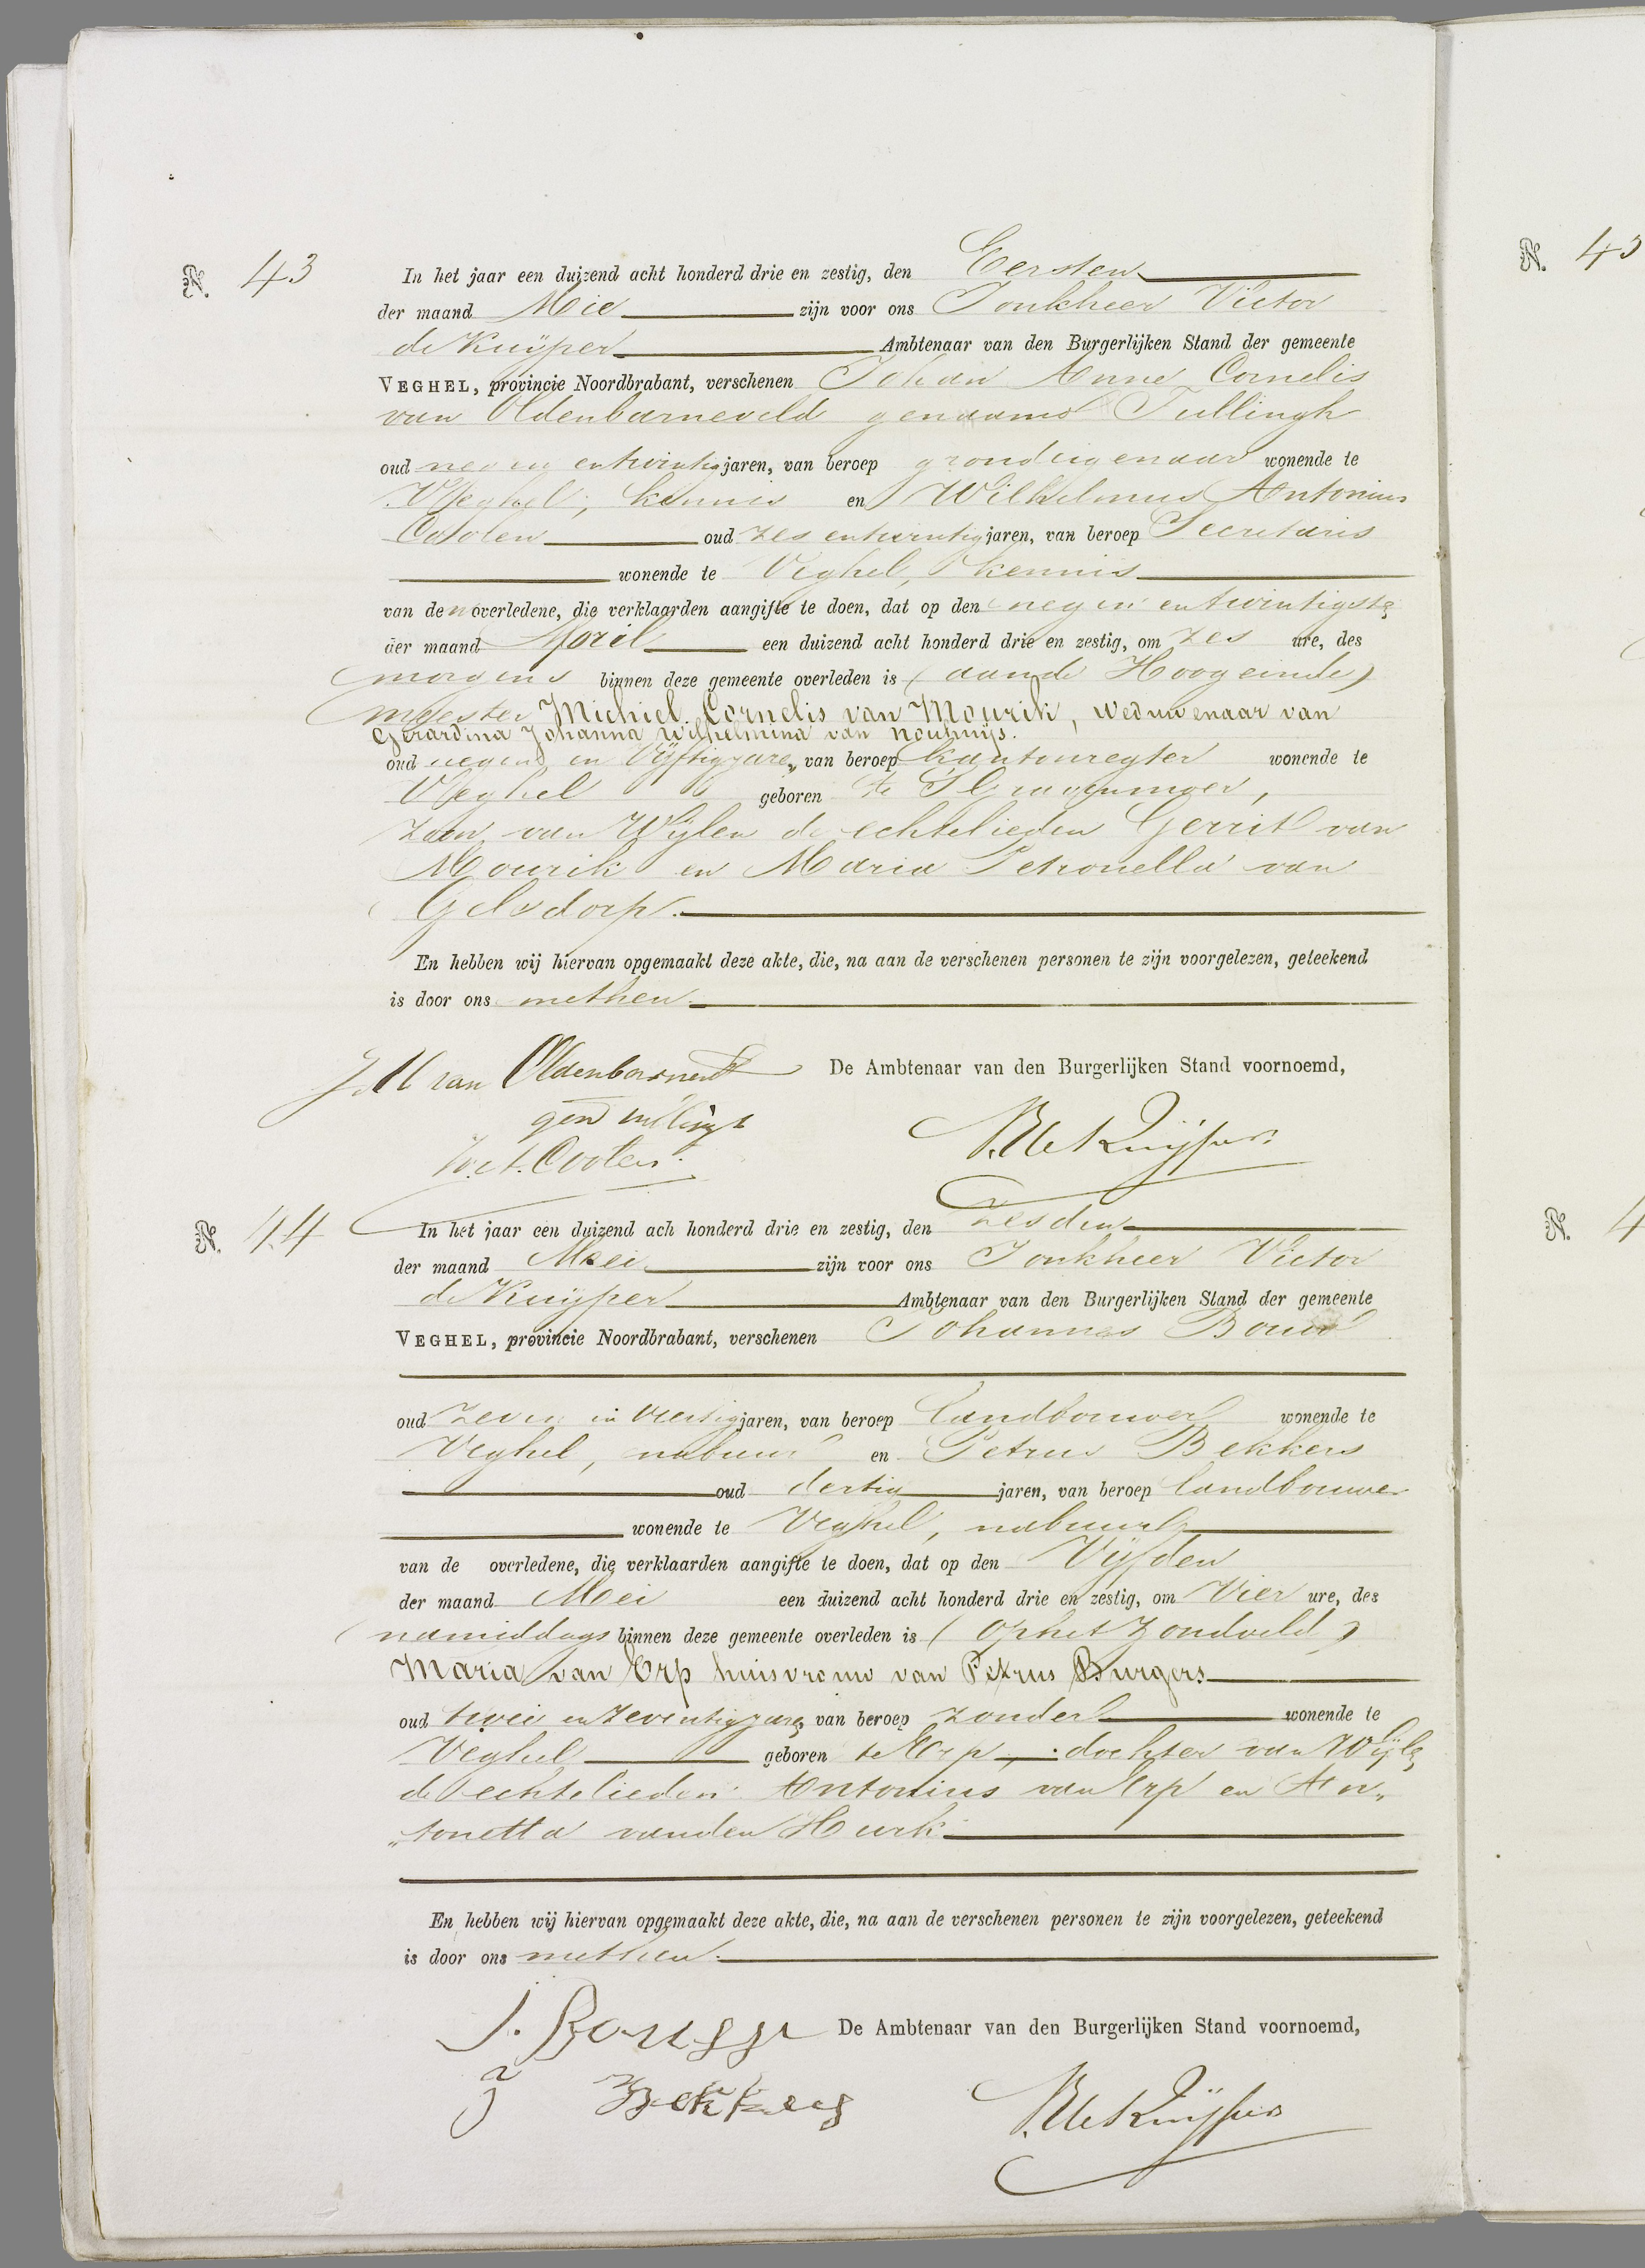 N. 43
In het jaar een duizend acht honderd drie en zestig, den Eersten
der maand Mei zijn voor ons Jonkheer Victor
de Kuijper Ambtenaar van den Burgerlijken Stand der gemeente
VEGHEL, provincie Noordbrabant, verschenen Johan Anne Cornelis
van Oldenbarneveld genaamd Tullingh
oud negen entwintig jaren, van beroep grondeigenaar wonende te
Veghel, kennis en Wilhelmus Antonius
Coolen oud zes entwintig jaren, van beroep Secretaris
wonende te Veghel, kennis
van den overledene, die verklaarden aangifte te doen, dat op den negen entwintigste
der maand April een duizend acht honderd drie en zestig, om zes ure, des
morgens binnen deze gemeente overleden is (aande Hoogeinde)
meester Michiel Cornelis van Mourik, weduwenaar van
Gerardina Johanna Wilhelmina van Nouhuijs.
oud negen en Vijftig jare, van beroep kantonregter wonende te
Veghel geboren te
zoon van Wijlen de echtelieden Gerrit van
Mourik en Maria Petronella van
Gelsdorp.
En hebben wij hiervan opgemaakt deze akte, die, na aan de verschenen personen te zijn voorgelezen, geteekend
is door ons methen.
van Oldenbarneveld
De Ambtenaar van den Burgerlijken Stand voornoemd,
gend Tullingh
W.A. Coolen.
V. de Kuijper
N. 44
In het jaar een duizend ach honderd drie en zestig, den Zesden
der maand Mei zijn voor ons Jonkheer Victor
de Kuijper Ambtenaar van den Burgerlijken Stand der gemeente
VEGHEL, provincie Noordbrabant, verschenen Johannes
oud zeven en veertig jaren, van beroep landbouwer wonende te
Veghel, nabuur en Petrus Bekkers
oud dertig jaren, van beroep landbouwer
wonende te Veghel, nabuur
van de overledene, die verklaarden aangifte te doen, dat op den Vijfden
der maand Mei een duizend acht honderd drie en zestig, om Vier ure, des
namiddags binnen deze gemeente overleden is (ophet Zondveld)
Maria van Erp huisvrouw van Petrus Burgers
oud twee en zeventig jare, van beroep zonder wonende te
Veghel geboren te Erp, dochter van Wijle
de echtelieden Antonius van Erp en An„
„tonetta vanden Hurk
En hebben wij hiervan opgemaakt deze akte, die, na aan de verschenen personen te zijn voorgelezen, geteekend
is door ons methen.
De Ambtenaar van den Burgerlijken Stand voornoemd,
Bekkers
V. de Kuijper
N. 43
N. 4